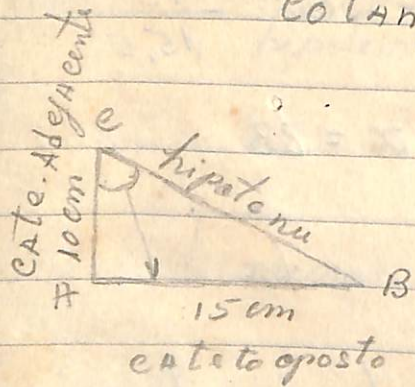 COTAN
CAte. AdejAcente
10 cm
C
hipotenu
A
B
15 cm
CAteto oposto